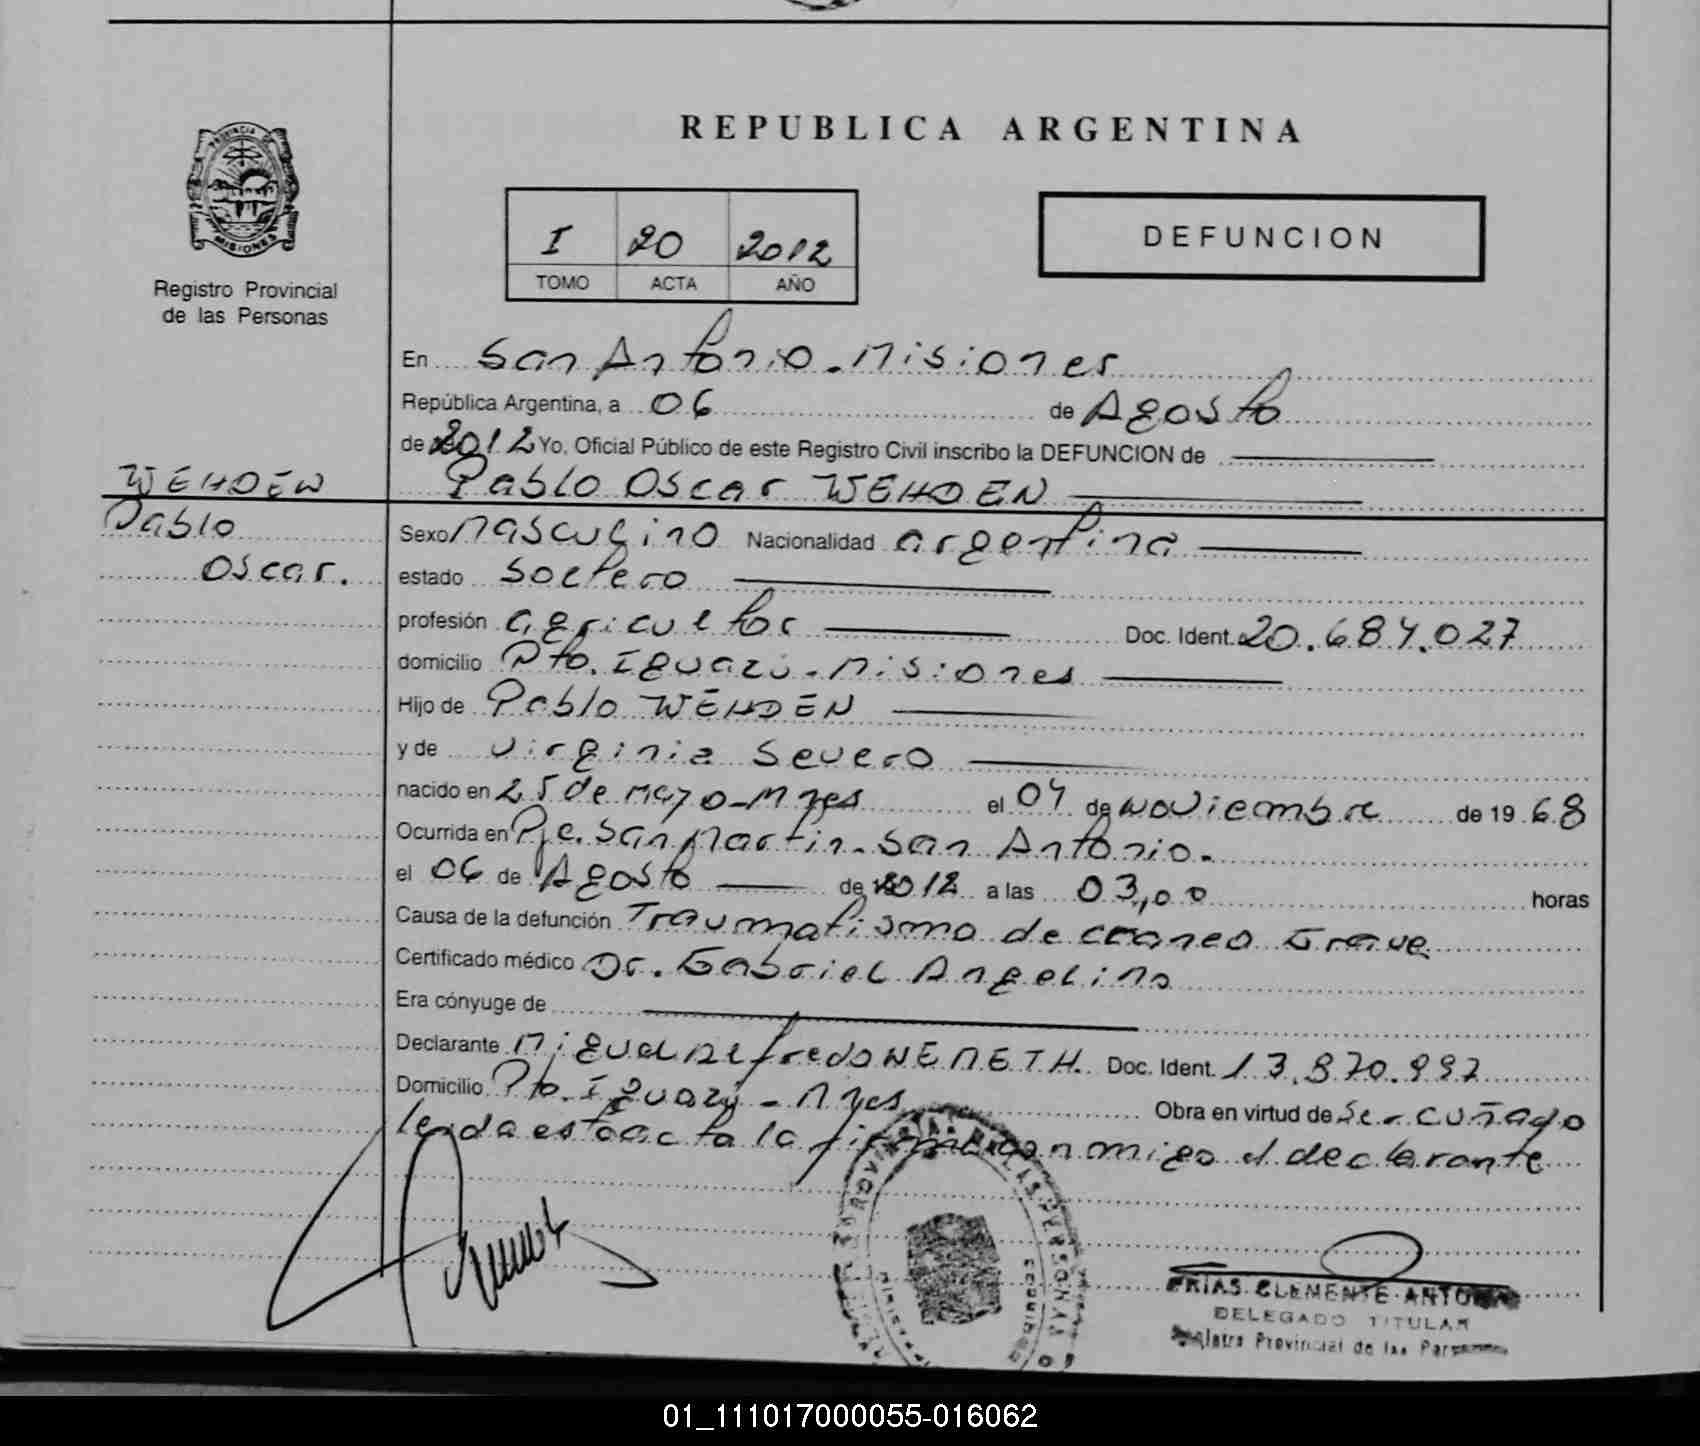 REPUBLICA ARGENTINA
PROVINCIA DE
MISIONES
Registro Provincial
de las Personas
I 20 2012
TOMO ACTA AÑO
DEFUNCION
En San Antonio - Misiones
República Argentina, a 06 de Agosto
de 2012 Yo, Oficial Público de este Registro Civil inscribo la DEFUNCION de
WEHDEN
Pablo Oscar WEHDEN
Pablo
Oscar.
Sexo Masculino Nacionalidad argentina
estado Soltero
profesión agricultor Doc. Ident. 20.684.027
domicilio Pto. Iguazú - Misiones
Hijo de Pablo WEHDEN
y de Virginia Severo
nacido en 25 de Mayo - Mnes el 04 de Noviembre de 1968
Ocurrida en Pje. San Martín - San Antonio.
el 06 de Agosto de 2012 a las 03,00 horas
Causa de la defunción Traumatismo de craneo Grave
Certificado médico Dr. Gabriel Angelino
Era cónyuge de
Declarante Miguel Alfredo NEMETH. Doc. Ident. 13.870.997
Domicilio Pto. Iguazú - Mnes Obra en virtud de Ser cuñado
leida esta acta la firma con migo el declarante
FRIAS CLEMENTE ANTONIO
DELEGADO TITULAR
Registro Provincial de las Personas
01_111017000055-016062